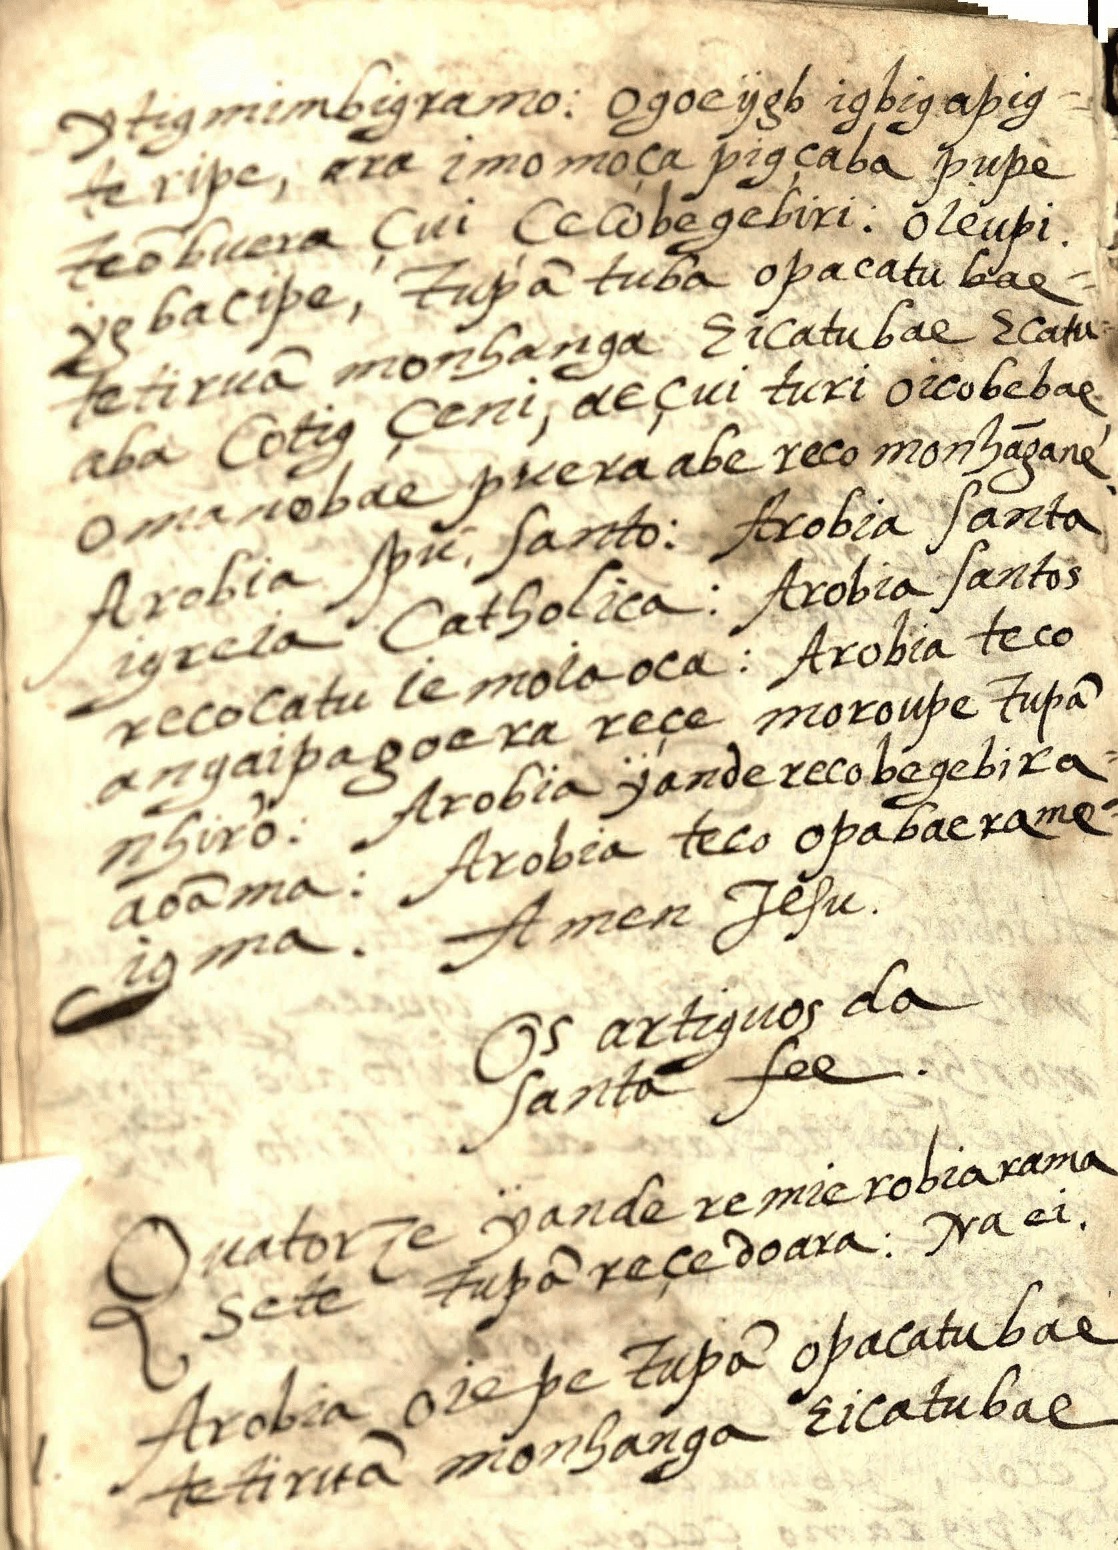 ytigmimbigramo: ogoeÿgb igbigapig-
teripe, ara imomoça pigçaba pupe
teõbuera çui çecobegebiri: oieupi.
ygbacipe, Tupã tuba opacatu bae-
tetiruã monhanga Eicatubae Ecatu-
aba cotig çeni, aeçui turi oicobebae
omanobae puera abe reco monhãgane.
Arobia spũ, santo: Arobia santa
igreia Catholica: Arobia santos
recocatu iemoiaoca: Arobia teco
angaipagoera reçe moroupe Tupã
nhirõ: Arobia ÿanderecobegebira-
aoãma: Arobia teco opabaerame-
igma. Amen Jesu.
Os artiguos da
santa fee.
Quatorze ÿande remierobiarama
Sete tupã reçedoara: Na ei.
1. Arobia oiepe Tupã opacatubae
tetiruã monhanga Eicatubae